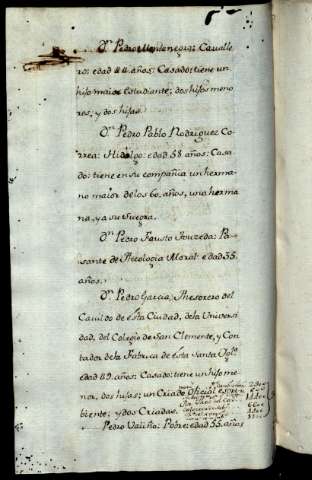 Dn. Pedro Montenegro: Cavalle
ro: edad 44 años: Casado: tiene un
hijo maior Estudiante; dos hijos meno
res; y dos hijas.
Dn. Pedro Pablo Rodriguez Co
rrea: Hidalgo: edad 58 años: Casa
do: tiene en su compañia un herma
no maior de los 60. años, una herma
na, y a su suegra.
Dn. Pedro Fausto Pa
sante de Theologia Moral: edad 35.
años.
Dn. Pedro Garcia; Thesorero del
Cavildo de esta Ciudad, de la Universi
dad, del Colegio de San Clemente, y Con
tador de la Fabrica de esta Santa Iglã
edad 49. años: Casado: tiene un hijo me
nor, dos hijas; un Criado Oficial escri
biente; y dos Criadas.
Pedro Valiño: Pobre: edad 55. años